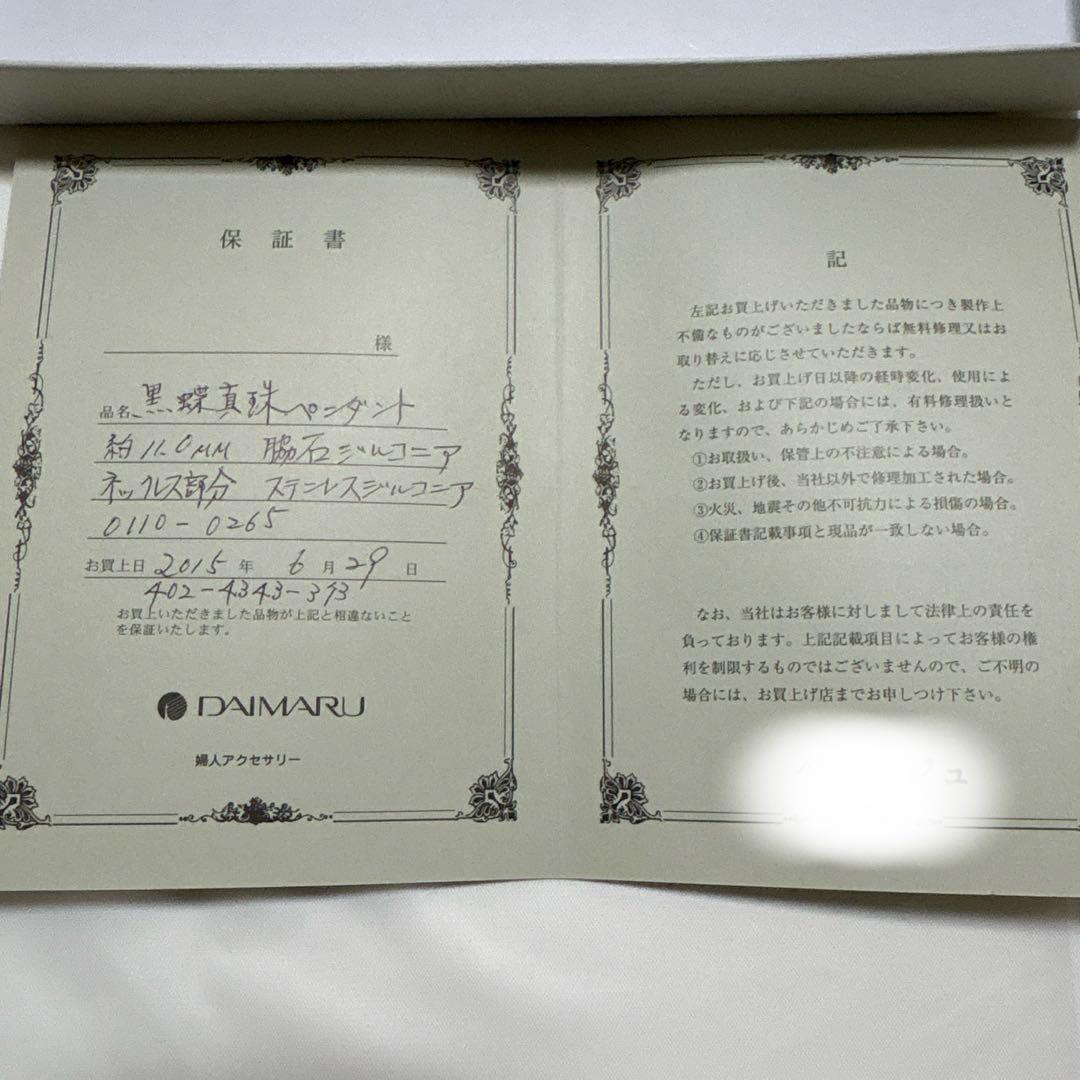 保証書
様
品名 黒蝶真珠ペンダント
約11.0MM 脇石ジルコニア
ネックレス部分 ステンレスジルコニア
0110-0265
お買上日 2015年 6月29日
402-4343-393
お買上いただきました品物が上記と相違ないこと
を保証いたします。
DAIMARU
婦人アクセサリー
記
左記お買上げいただきました品物につき製作上
不備なものがございましたならば無料修理又はお
取り替えに応じさせていただきます。
ただし、お買上げ日以降の経時変化、使用によ
る変化、および下記の場合には、有料修理扱いと
なりますので、あらかじめご了承下さい。
①お取扱い、保管上の不注意による場合。
②お買上げ後、当社以外で修理加工された場合。
③火災、地震その他不可抗力による損傷の場合。
④保証書記載事項と現品が一致しない場合。
なお、当社はお客様に対しまして法律上の責任を
負っております。上記記載項目によってお客様の権
利を制限するものではございませんので、ご不明の
場合には、お買上げ店までお申しつけ下さい。
ュ